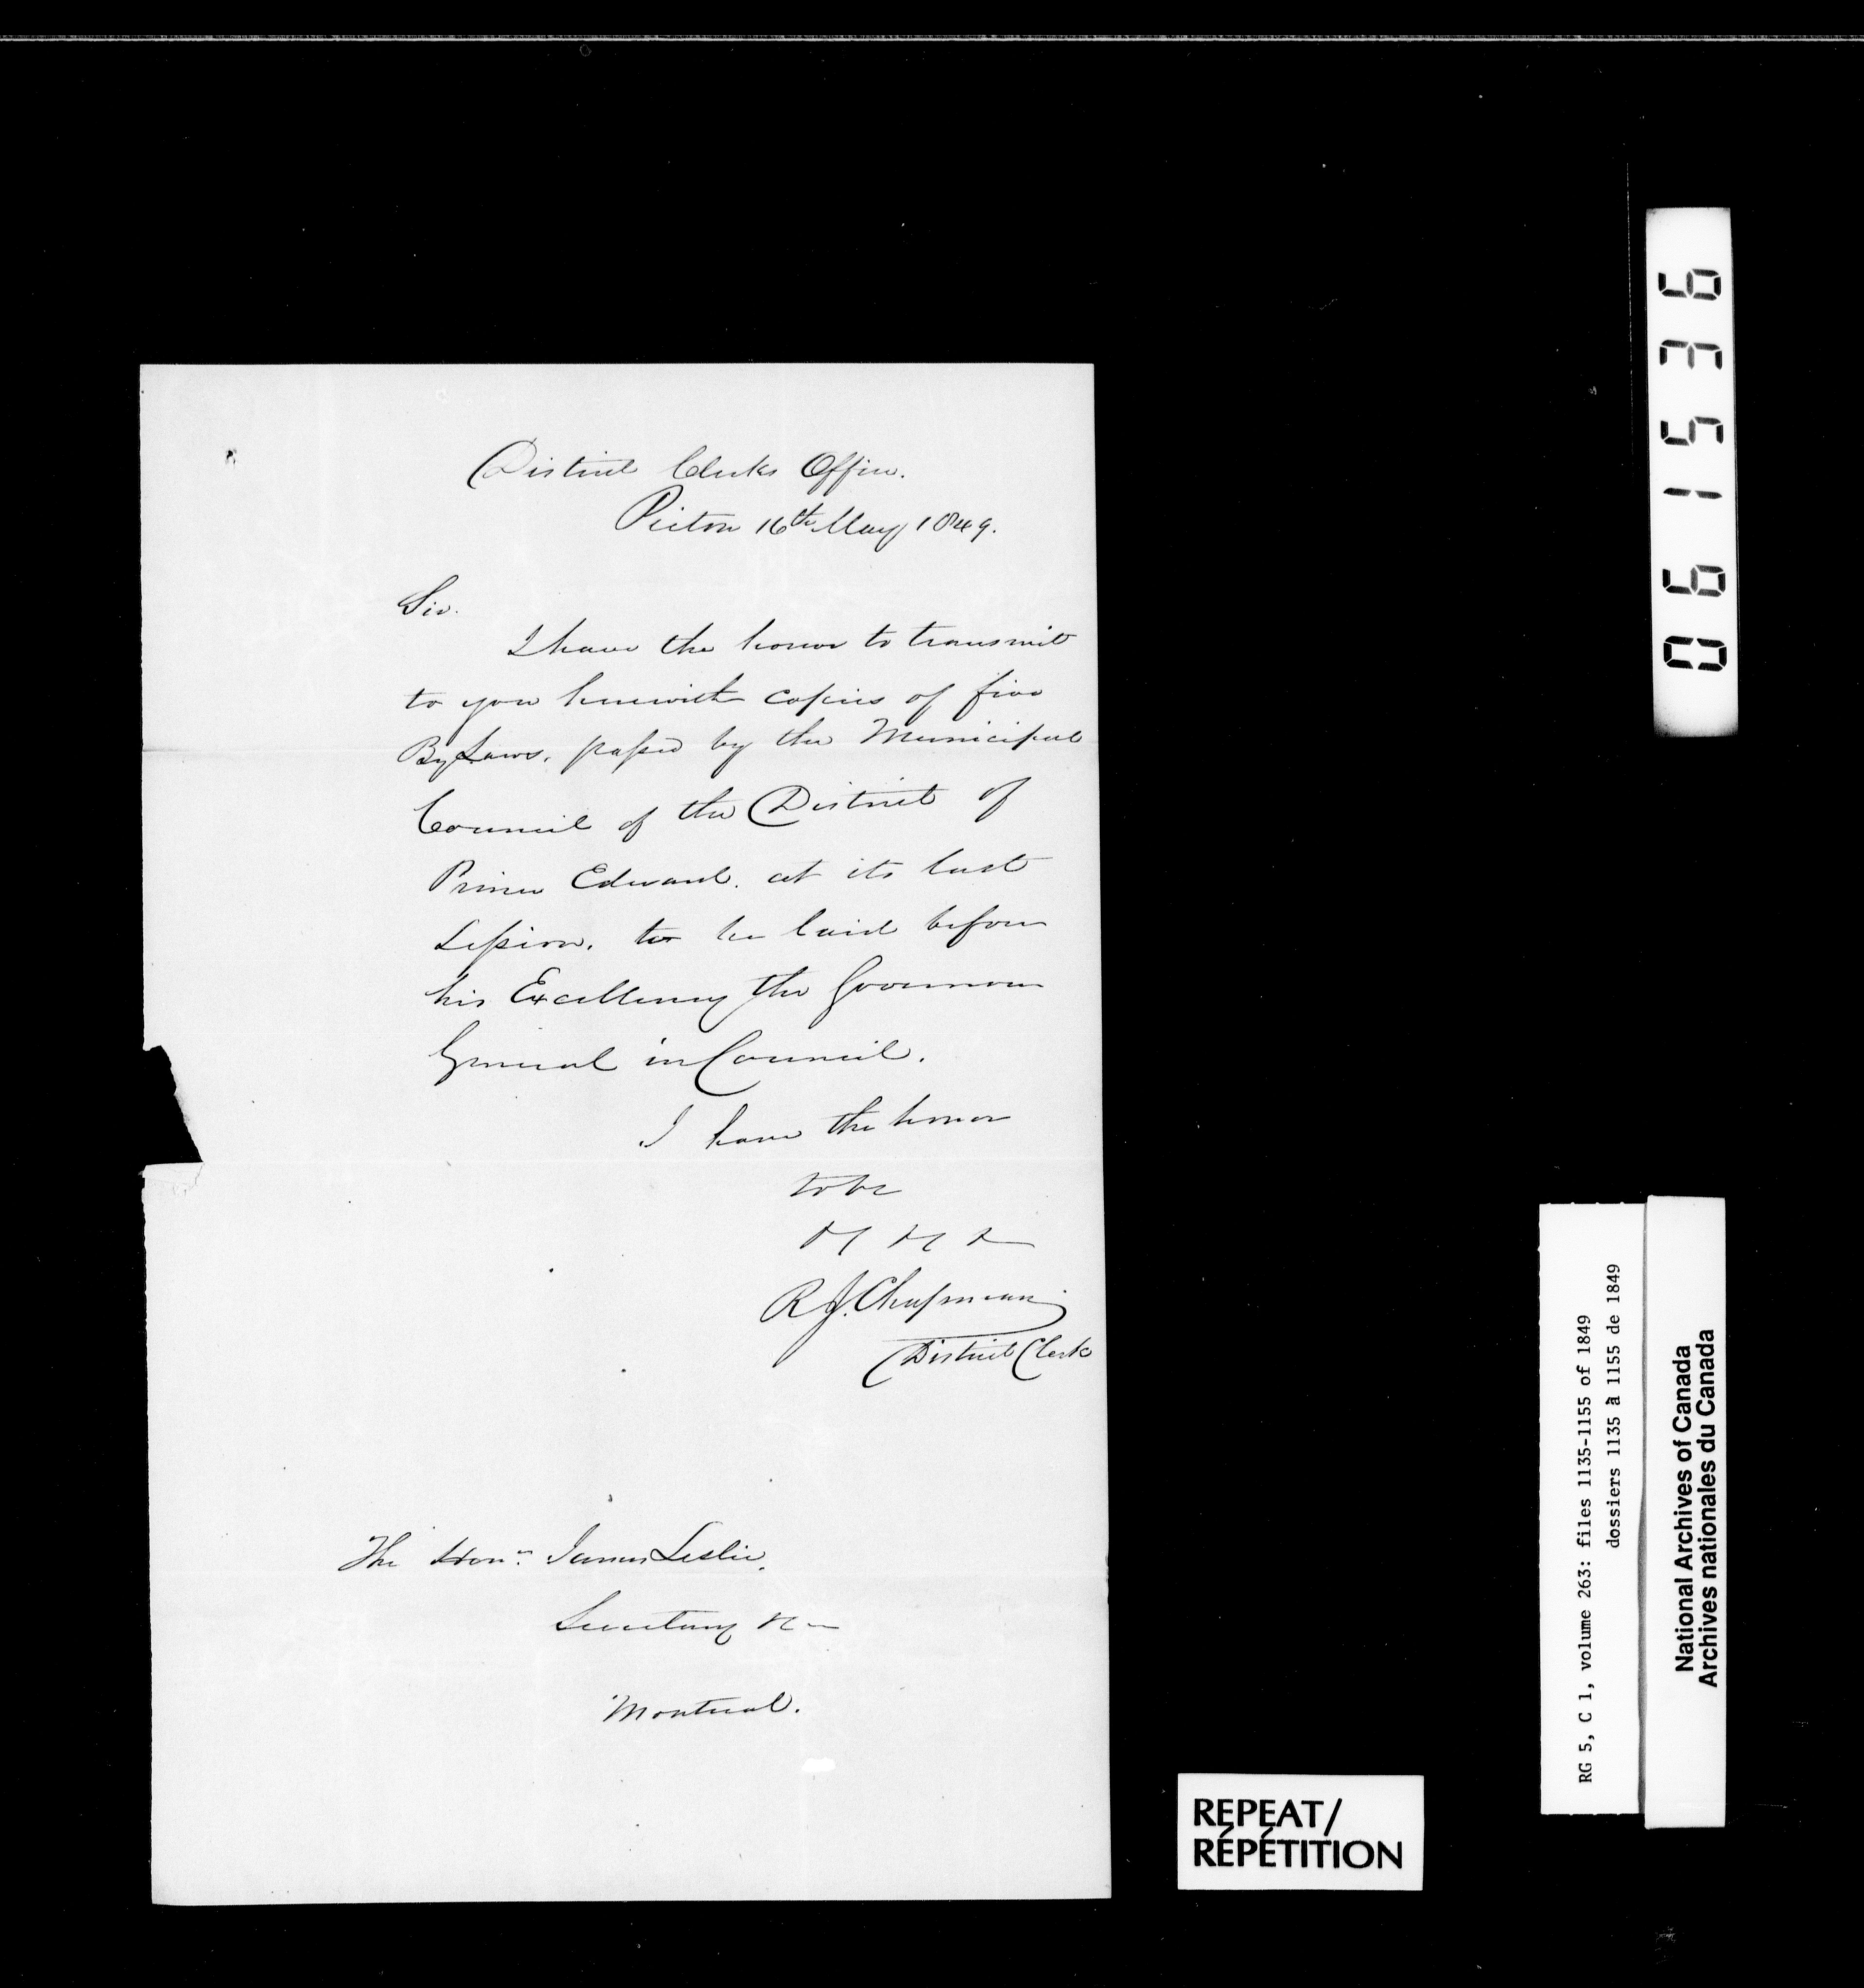 District Clerks Office.
Picton 16th May 1849.
Sir.
I have the honor to transmit
to you herewith copies of five
By Laws, passed by the Municipal
Council of the District of
Prince Edward. at its last
Session. to be laid before
his Excellency the Governor
General in Council.
I have the honor
to be
&c &c &c
R J. Chapman
District Clerk
The Honble James Leslie.
Secretary &c
Montreal.
061536
RG 5, C 1, volume 263: files 1135-1155 of 1849
dossiers 1135 à 1155 de 1849
National Archives of Canada
Archives nationales du Canada
REPEAT/
RÉPÉTITION